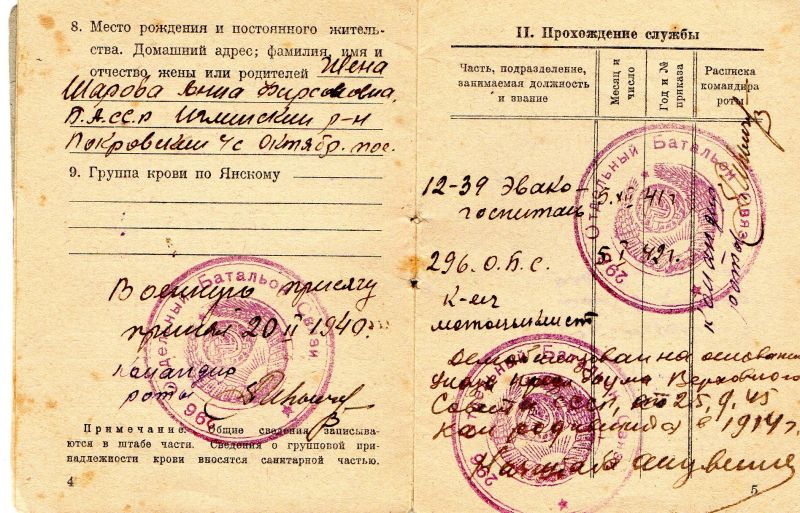 8. Место рождения и постоянного житель-
ства. Домашний адрес; фамилия, имя и
отчество жены или родителей Жена
Шарова Анна Фирсовна,
Б.А.сс.р Иглинский р-н
Покровский с/с Октябр. пос.
9. Группа крови по Янскому
Военную присягу
принял 20 II 1940г.
Командир
роты
Отдельный Батальон Связи
296
Примечание. Общие сведения записыва-
ются в штабе части. Сведения о групповой при-
надлежности крови вносятся санитарной частью.
4
II. Прохождение службы
Часть, подразделение,
занимаемая должность
и звание
Месяц и
число
Год и №
приказа
Расписка
командира
роты
Отдельный Батальон Связи
296
12-39 Эвако-
госпиталь
5. XII 41г
296. О.Б.С.
5 I 42г.
к-ич
мотоциклист
командир
роты
Демобилизован на основании
Указа Президиума Верховного
Совета СССР от 25.9.45
как 1914г.
Начштаба
Отдельный Батальон Связи
296
5